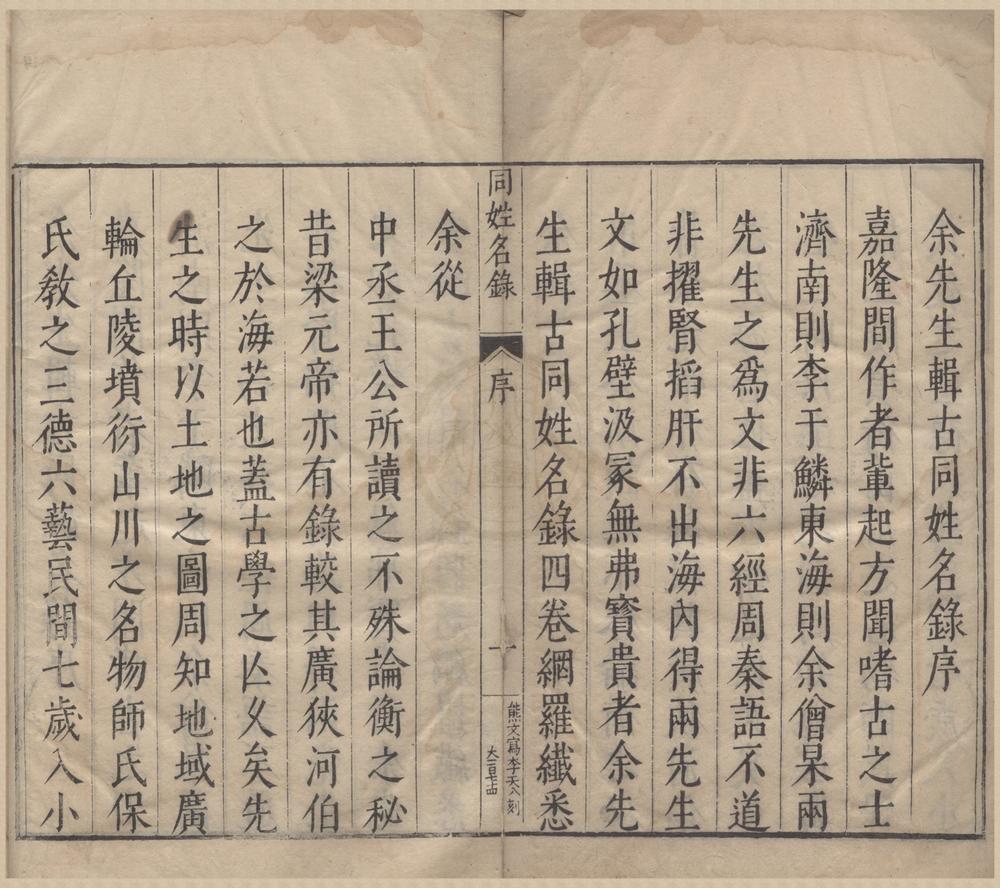 余先生輯古同姓名錄序
嘉隆間作者軰起方聞嗜古之士
濟南則李于鱗東海則余僧杲兩
先生之爲文非六經周秦語不道
非擢腎搯肝不出海內得兩先生
文如孔壁汲冡無弗寳貴者余先
生輯古同姓名錄四卷網羅纖悉
同姓名錄
序
熊文寫李天刻
余從
中丞王公所讀之不殊論衡之秘
昔梁元帝亦有錄較其廣狹河伯
之於海若也蓋古學之亾乆矣先
生之時以土地之圖周知地域廣
輪丘陵墳衍山川之名物師氏保
氏敎之三德六藝民間七歲入小